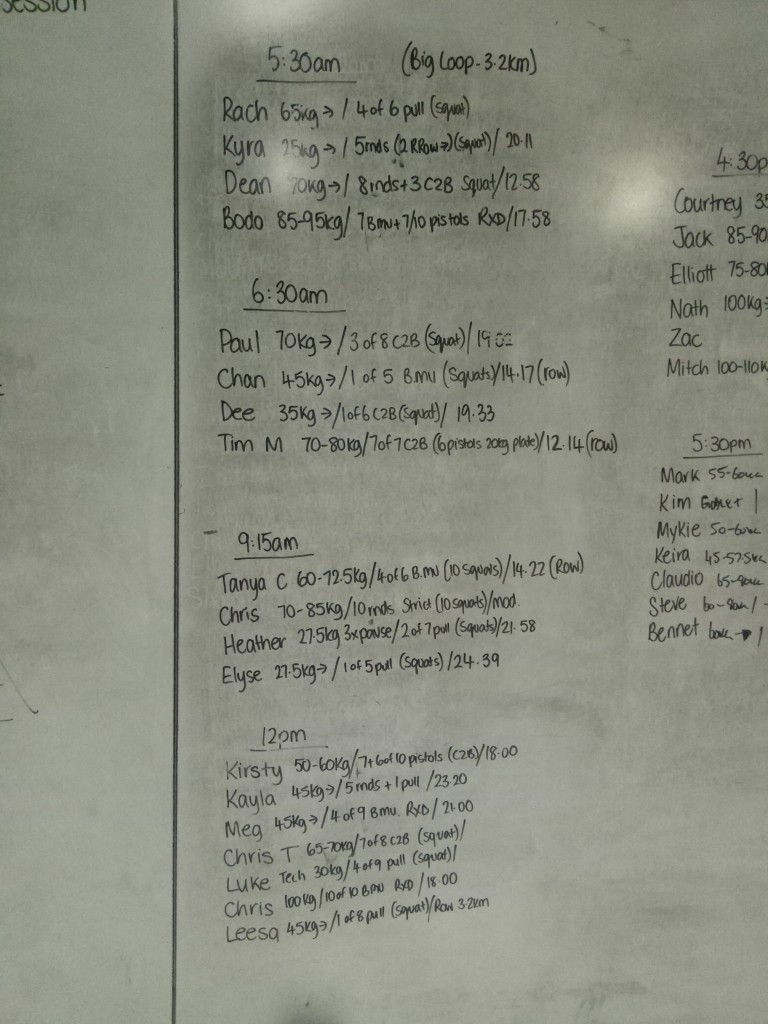 session
5:30am (Big Loop - 3.2km)
Rach 65kg→ / 4 of 6 pull (squat)
Kyra 25kg→ / 5rnds (2 RRow→)(squat)/ 20.11
Dean 70kg→/ 8rnds+3 C2B Squat/12.58
Bodo 85-95kg/ 7 Bmu+7/10 pistols RXD/17.58
6:30am
Paul 70kg→/3 of 8 C2B (Squat)/
Chan 45kg→/1 of 5 B.mu (Squats)/14.17(row)
Dee 35kg→/1of 6 C2B(Squat)/ 19.33
Tim M 70-80kg/7of 7 C2B (6pistols 20kg plate)/12.14(row)
9:15am
Tanya C 60-72.5kg/4 of 6 B.mu (10 squats)/14.22 (Row)
Chris 70-85kg/10rnds Strict (10squats)/mod.
Heather 27.5kg 3xpause/2 of 7 pull (squats)/21.58
Elyse 27.5kg→/1 of 5 pull (squats)/24.39
12pm
Kirsty 50-60kg/7+6of 10 pistols (C2B)/18.00
Kayla 45kg→/5 rnds + 1 pull /23.20
Meg 45kg→/4 of 9 Bmu. RXD/ 21.00
Chris T 65-70kg/7of 8 C2B (squat)/
Luke Tech 30kg/4of 9 pull (squat)/
Chris 100kg/10 of 10 Bmu RXD /18.00
Leesa 45kg→/1 of 8 pull (squat)/Row 3.2km
4:30p
Courtney 35
Jack 85-90
Elliott 75-80k
Nath 100kg
Zac
Mitch 100-110k
5:30pm
Mark 55-60
Kim
Mykie 50-60
Keira 45-57.5
Claudio 65-
Steve 60-
Bennet